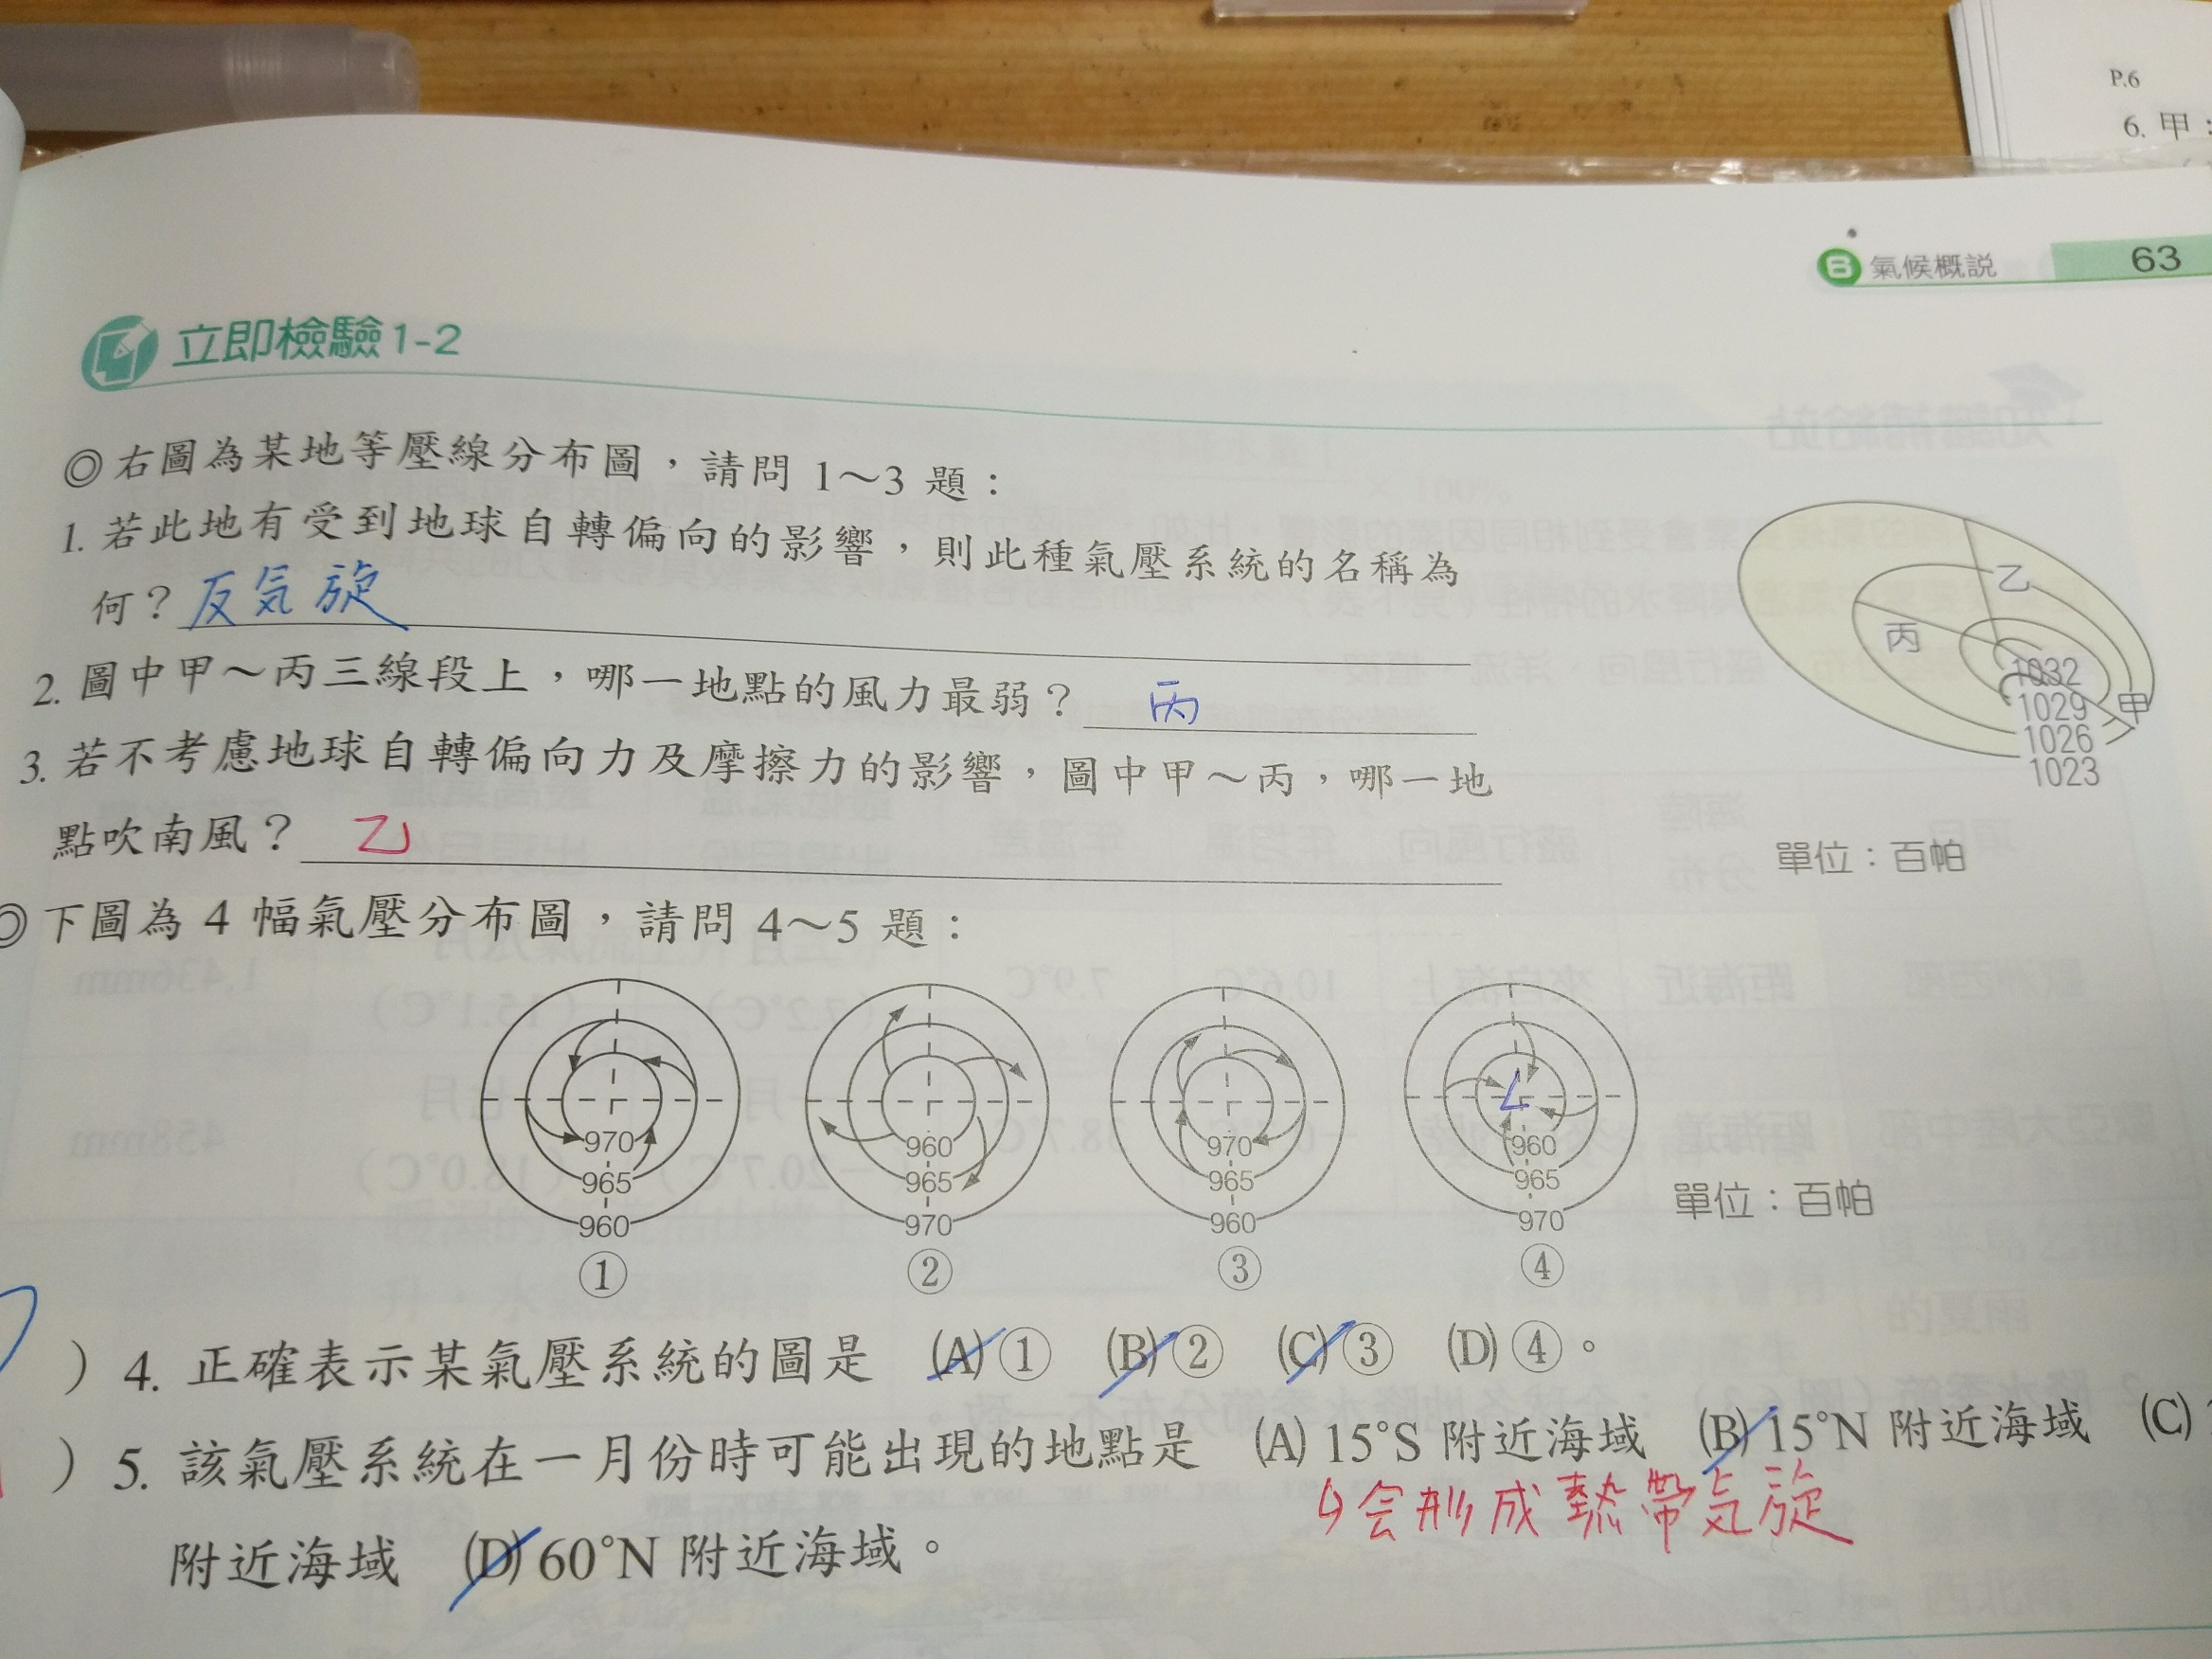 P.6
6. 甲：
B 氣候概説 63
立即檢驗1-2
◎右圖為某地等壓線分布圖，請問 1～3 題：
1. 若此地有受到地球自轉偏向的影響，則此種氣壓系統的名稱為
何？反気旋
2. 圖中甲～丙三線段上，哪一地點的風力最弱？丙
3. 若不考慮地球自轉偏向力及摩擦力的影響，圖中甲～丙，哪一地
點吹南風？乙
乙
丙
甲
1032
1029
1026
1023
單位：百帕
◎下圖為 4 幅氣壓分布圖，請問 4～5 題：
970
965
960
①
960
965
970
②
970
965
960
③
L
960
965
970
④
單位：百帕
) 4. 正確表示某氣壓系統的圖是 (A)① (B)② (C)③ (D)④。
) 5. 該氣壓系統在一月份時可能出現的地點是 (A) 15°S 附近海域 (B) 15°N 附近海域 (C)
↳会形成熱帶気旋
附近海域 (D) 60°N 附近海域。